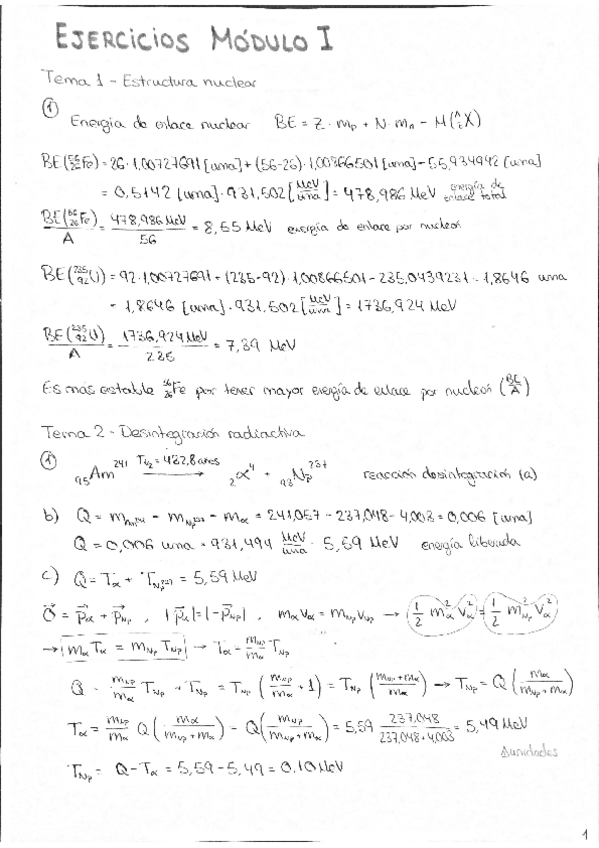 EJERCICIOS MÓDULO I
Tema 1 - Estructura nuclear
① Energía de enlace nuclear BE = Z · mp + N · mn - M(ᴬzX)
BE(⁵⁶₂₆Fe) = 26 · 1,00727691 [uma] + (56-26) · 1,00866501 [uma] - 55,934942 [uma]
= 0,5142 [uma] · 931,502 [MeV/uma] = 478,986 MeV energía de enlace total
BE(⁵⁶₂₆Fe)/A = 478,986 MeV/56 = 8,55 MeV energía de enlace por nucleón
BE(²³⁵₉₂U) = 92 · 1,00727691 + (235-92) · 1,00866501 - 235,0439231 = 1,8646 uma
= 1,8646 [uma] · 931,502 [MeV/uma] = 1736,924 MeV
BE(²³⁵₉₂U)/A = 1736,924 MeV/235 = 7,39 MeV
Es más estable ⁵⁶₂₆Fe por tener mayor energía de enlace por nucleón (BE/A)
Tema 2 - Desintegración radiactiva
① ₉₅Am²⁴¹ T½ = 432,8 años → ₂α⁴ + ₉₃Np²³⁷ reacción desintegración (a)
b) Q = mAm²⁴¹ - mNp²³⁷ - mα = 241,057 - 237,048 - 4,003 = 0,006 [uma]
Q = 0,006 uma · 931,494 MeV/uma = 5,59 MeV energía liberada
c) Q = Tα + TNp²³⁷ = 5,59 MeV
0⃗ = p⃗α + p⃗Np , |p⃗α| = |-p⃗Np| , mαvα = mNpvNp → (½ m²α v²α) = (½ m²Np v²α)
→ |mα Tα = mNp TNp| → Tα = mNp/mα TNp
Q = mNp/mα TNp + TNp = TNp (mNp/mα + 1) = TNp (mNp + mα/mα) → TNp = Q (mα/mNp + mα)
Tα = mNp/mα Q (mα/mNp + mα) = Q (mNp/mNp + mα) = 5,59 237,048/237,048 + 4,003 = 5,49 MeV
unidades
TNp = Q - Tα = 5,59 - 5,49 = 0,10 MeV
1